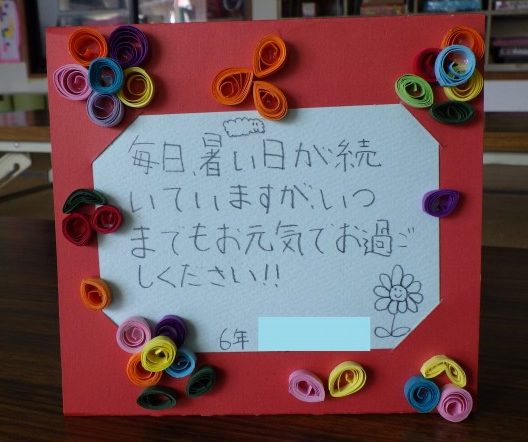 毎日、暑い日が続
いていますが、いつ
までもお元気でお過ご
しください!!
6年